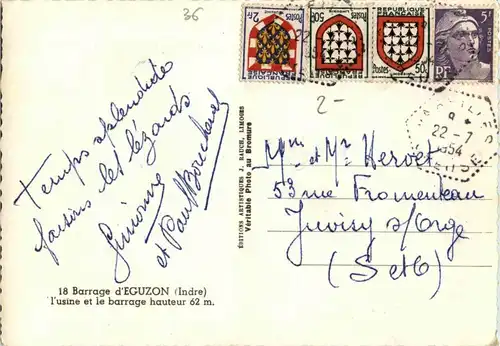 36
2F Postes
FRANÇAISE
RÉPUBLIQUE FRANÇAISE
Postes 50c
5F
22-7
1954
CREUSE
2-
Temps splendide
faisons les lézards
Simone
et Paul Bouchard
Mme et Mr Hervet
53 rue Fromenteau
Juvisy s/Orge
(S et O)
ÉDITIONS ARTISTIQUES J. BAUCH, LIMOGES
Véritable Photo au Bromure
18 Barrage d'EGUZON (Indre)
l'usine et le barrage hauteur 62 m.